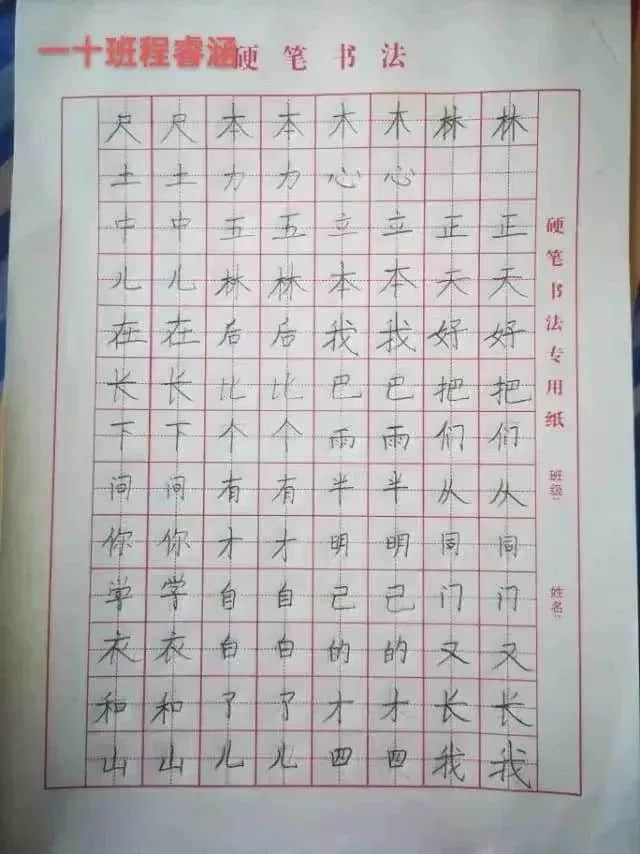 一十班程睿涵
硬笔书法
尺尺本本木木林林
土土力力心心
中中五五立立正正
儿儿林林本本天天
在在后后我我好好
长长比比巴巴把把
下下个个雨雨们们
问问有有半半从从
你你才才明明同同
学学自自己己门门
衣衣白白的的又又
和和了了才才长长
山山儿儿四四我我
硬笔书法专用纸
班级:
姓名: